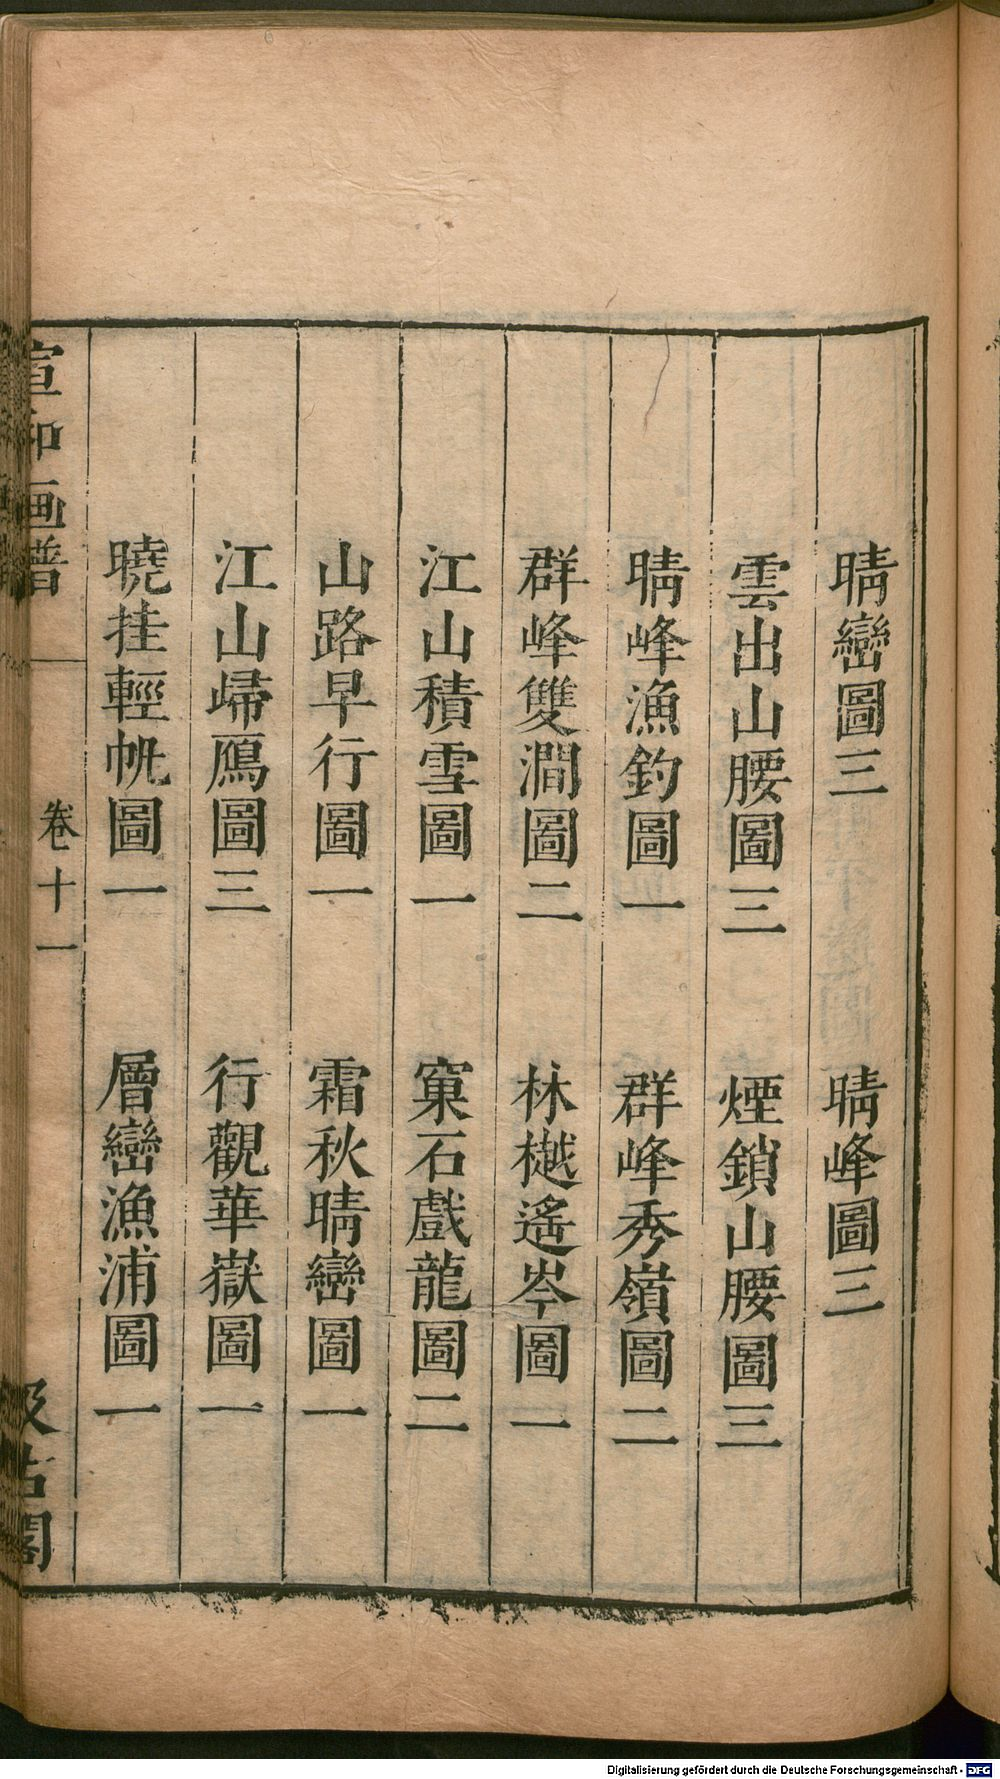 晴巒圖三　晴峰圖三
雲出山腰圖三　煙鎖山腰圖三
晴峰漁釣圖一　群峰秀嶺圖二
群峰雙澗圖二　林樾遙岑圖一
江山積雪圖一　窠石戲龍圖二
山路早行圖一　霜秋晴巒圖一
江山歸鴈圖三　行觀華嶽圖一
曉挂輕帆圖一　層巒漁浦圖一
宣和画譜　卷十一　汲古閣
Digitalisierung gefördert durch die Deutsche Forschungsgemeinschaft - DFG